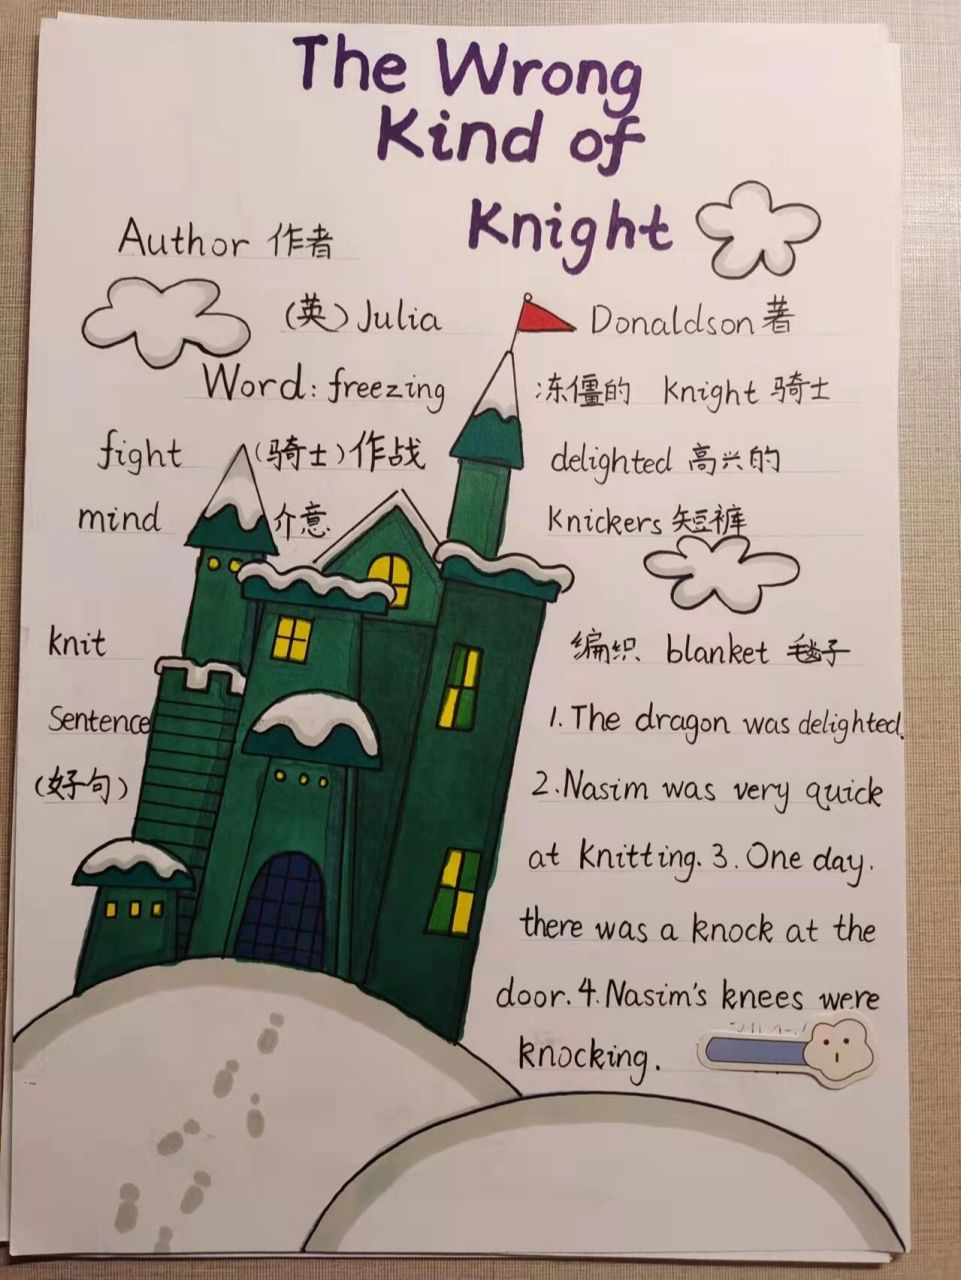 The Wrong
Kind of
Knight
Author 作者
(英) Julia Donaldson 著
Word: freezing 冻僵的 Knight 骑士
fight (骑士)作战 delighted 高兴的
mind 介意 Knickers 短裤
knit 编织 blanket 毯子
Sentence 1. The dragon was delighted.
(好句) 2. Nasim was very quick
at knitting. 3. One day.
there was a knock at the
door. 4. Nasim's knees were
knocking.